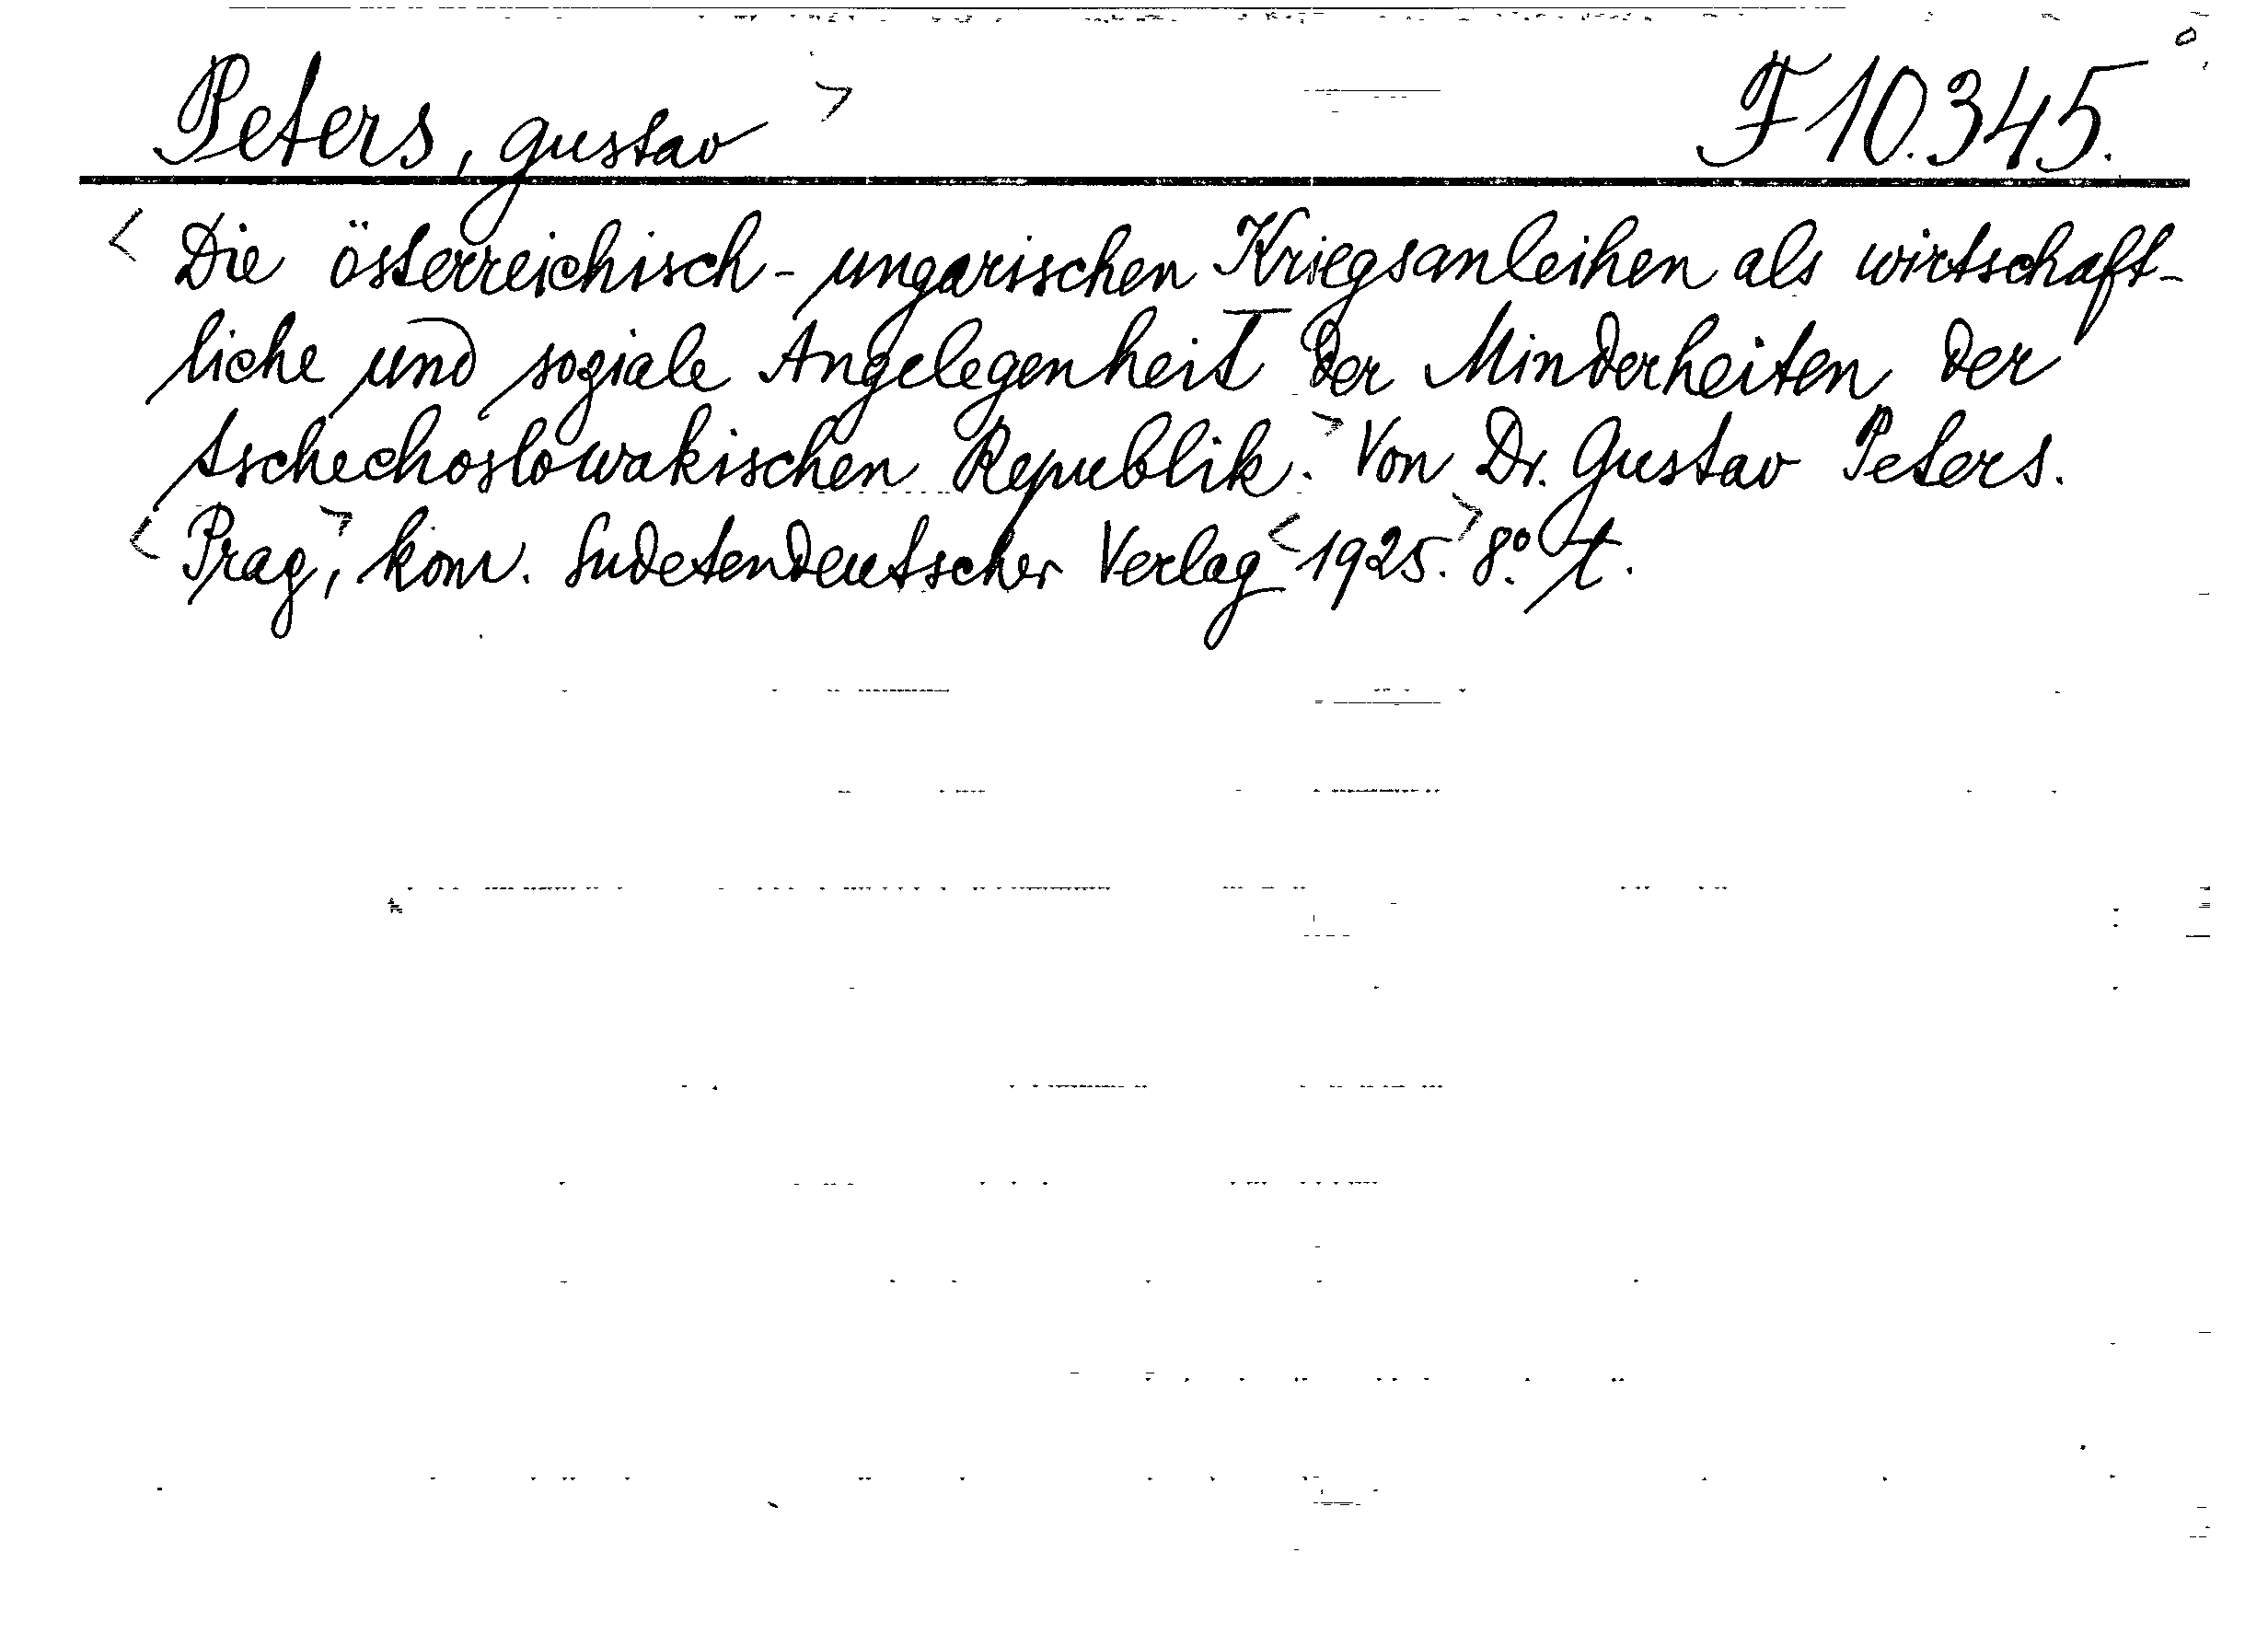 Peters, Gustav > F 10.345.
< Die österreichisch-ungarischen Kriegsanleihen als wirtschaft-
liche und soziale Angelegenheit der Minderheiten der
tschechoslowakischen Republik.> Von Dr. Gustav Peters.
< Prag,> kom. Sudetendeutscher Verlag <1925.> 8º. t.